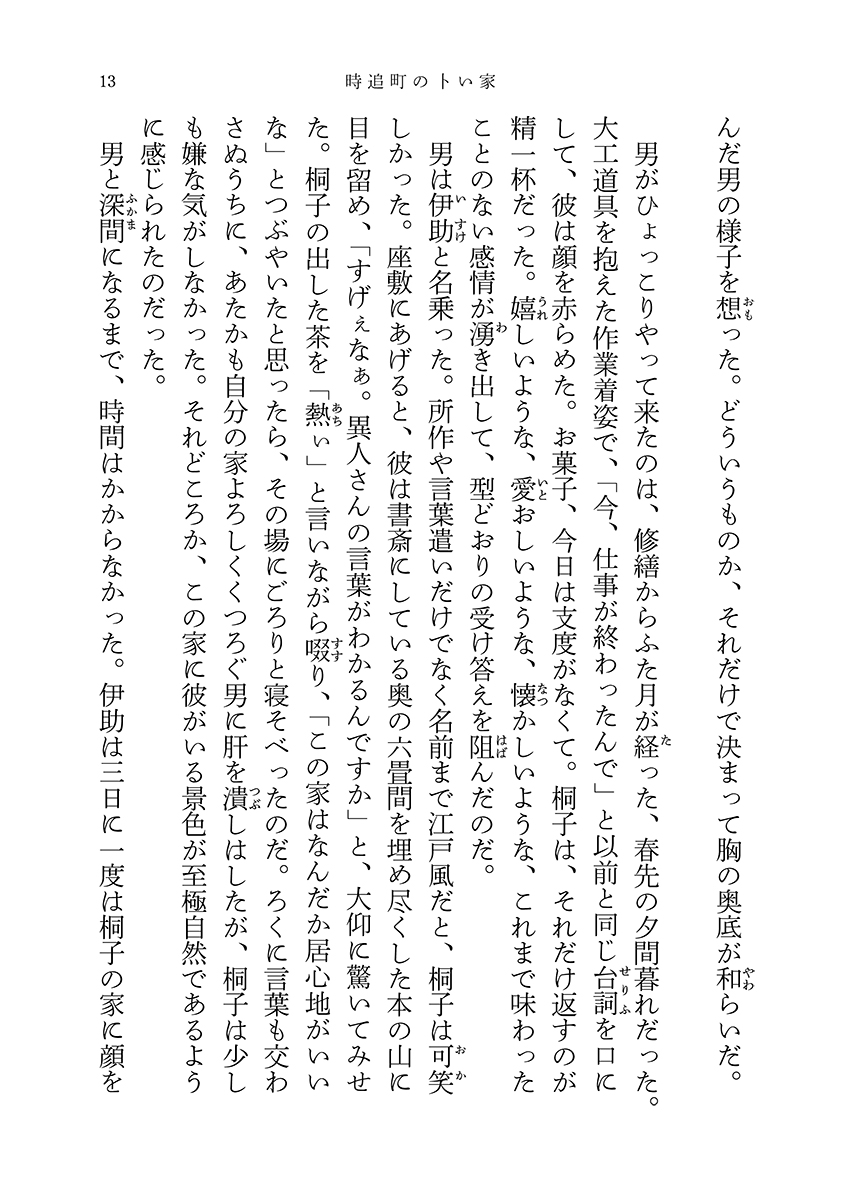 13
時追町の卜い家
んだ男の様子を想った。どういうものか、それだけで決まって胸の奥底が和らいだ。
男がひょっこりやって来たのは、修繕からふた月が経った、春先の夕間暮れだった。
大工道具を抱えた作業着姿で、「今、仕事が終わったんで」と以前と同じ台詞を口に
して、彼は顔を赤らめた。お菓子、今日は支度がなくて。桐子は、それだけ返すのが
精一杯だった。嬉しいような、愛おしいような、懐かしいような、これまで味わった
ことのない感情が湧き出して、型どおりの受け答えを阻んだのだ。
男は伊助と名乗った。所作や言葉遣いだけでなく名前まで江戸風だと、桐子は可笑
しかった。座敷にあげると、彼は書斎にしている奥の六畳間を埋め尽くした本の山に
目を留め、「すげぇなぁ。異人さんの言葉がわかるんですか」と、大仰に驚いてみせ
た。桐子の出した茶を「熱ぃ」と言いながら啜り、「この家はなんだか居心地がいい
な」とつぶやいたと思ったら、その場にごろりと寝そべったのだ。ろくに言葉も交わ
さぬうちに、あたかも自分の家よろしくくつろぐ男に肝を潰しはしたが、桐子は少し
も嫌な気がしなかった。それどころか、この家に彼がいる景色が至極自然であるよう
に感じられたのだった。
男と深間になるまで、時間はかからなかった。伊助は三日に一度は桐子の家に顔を